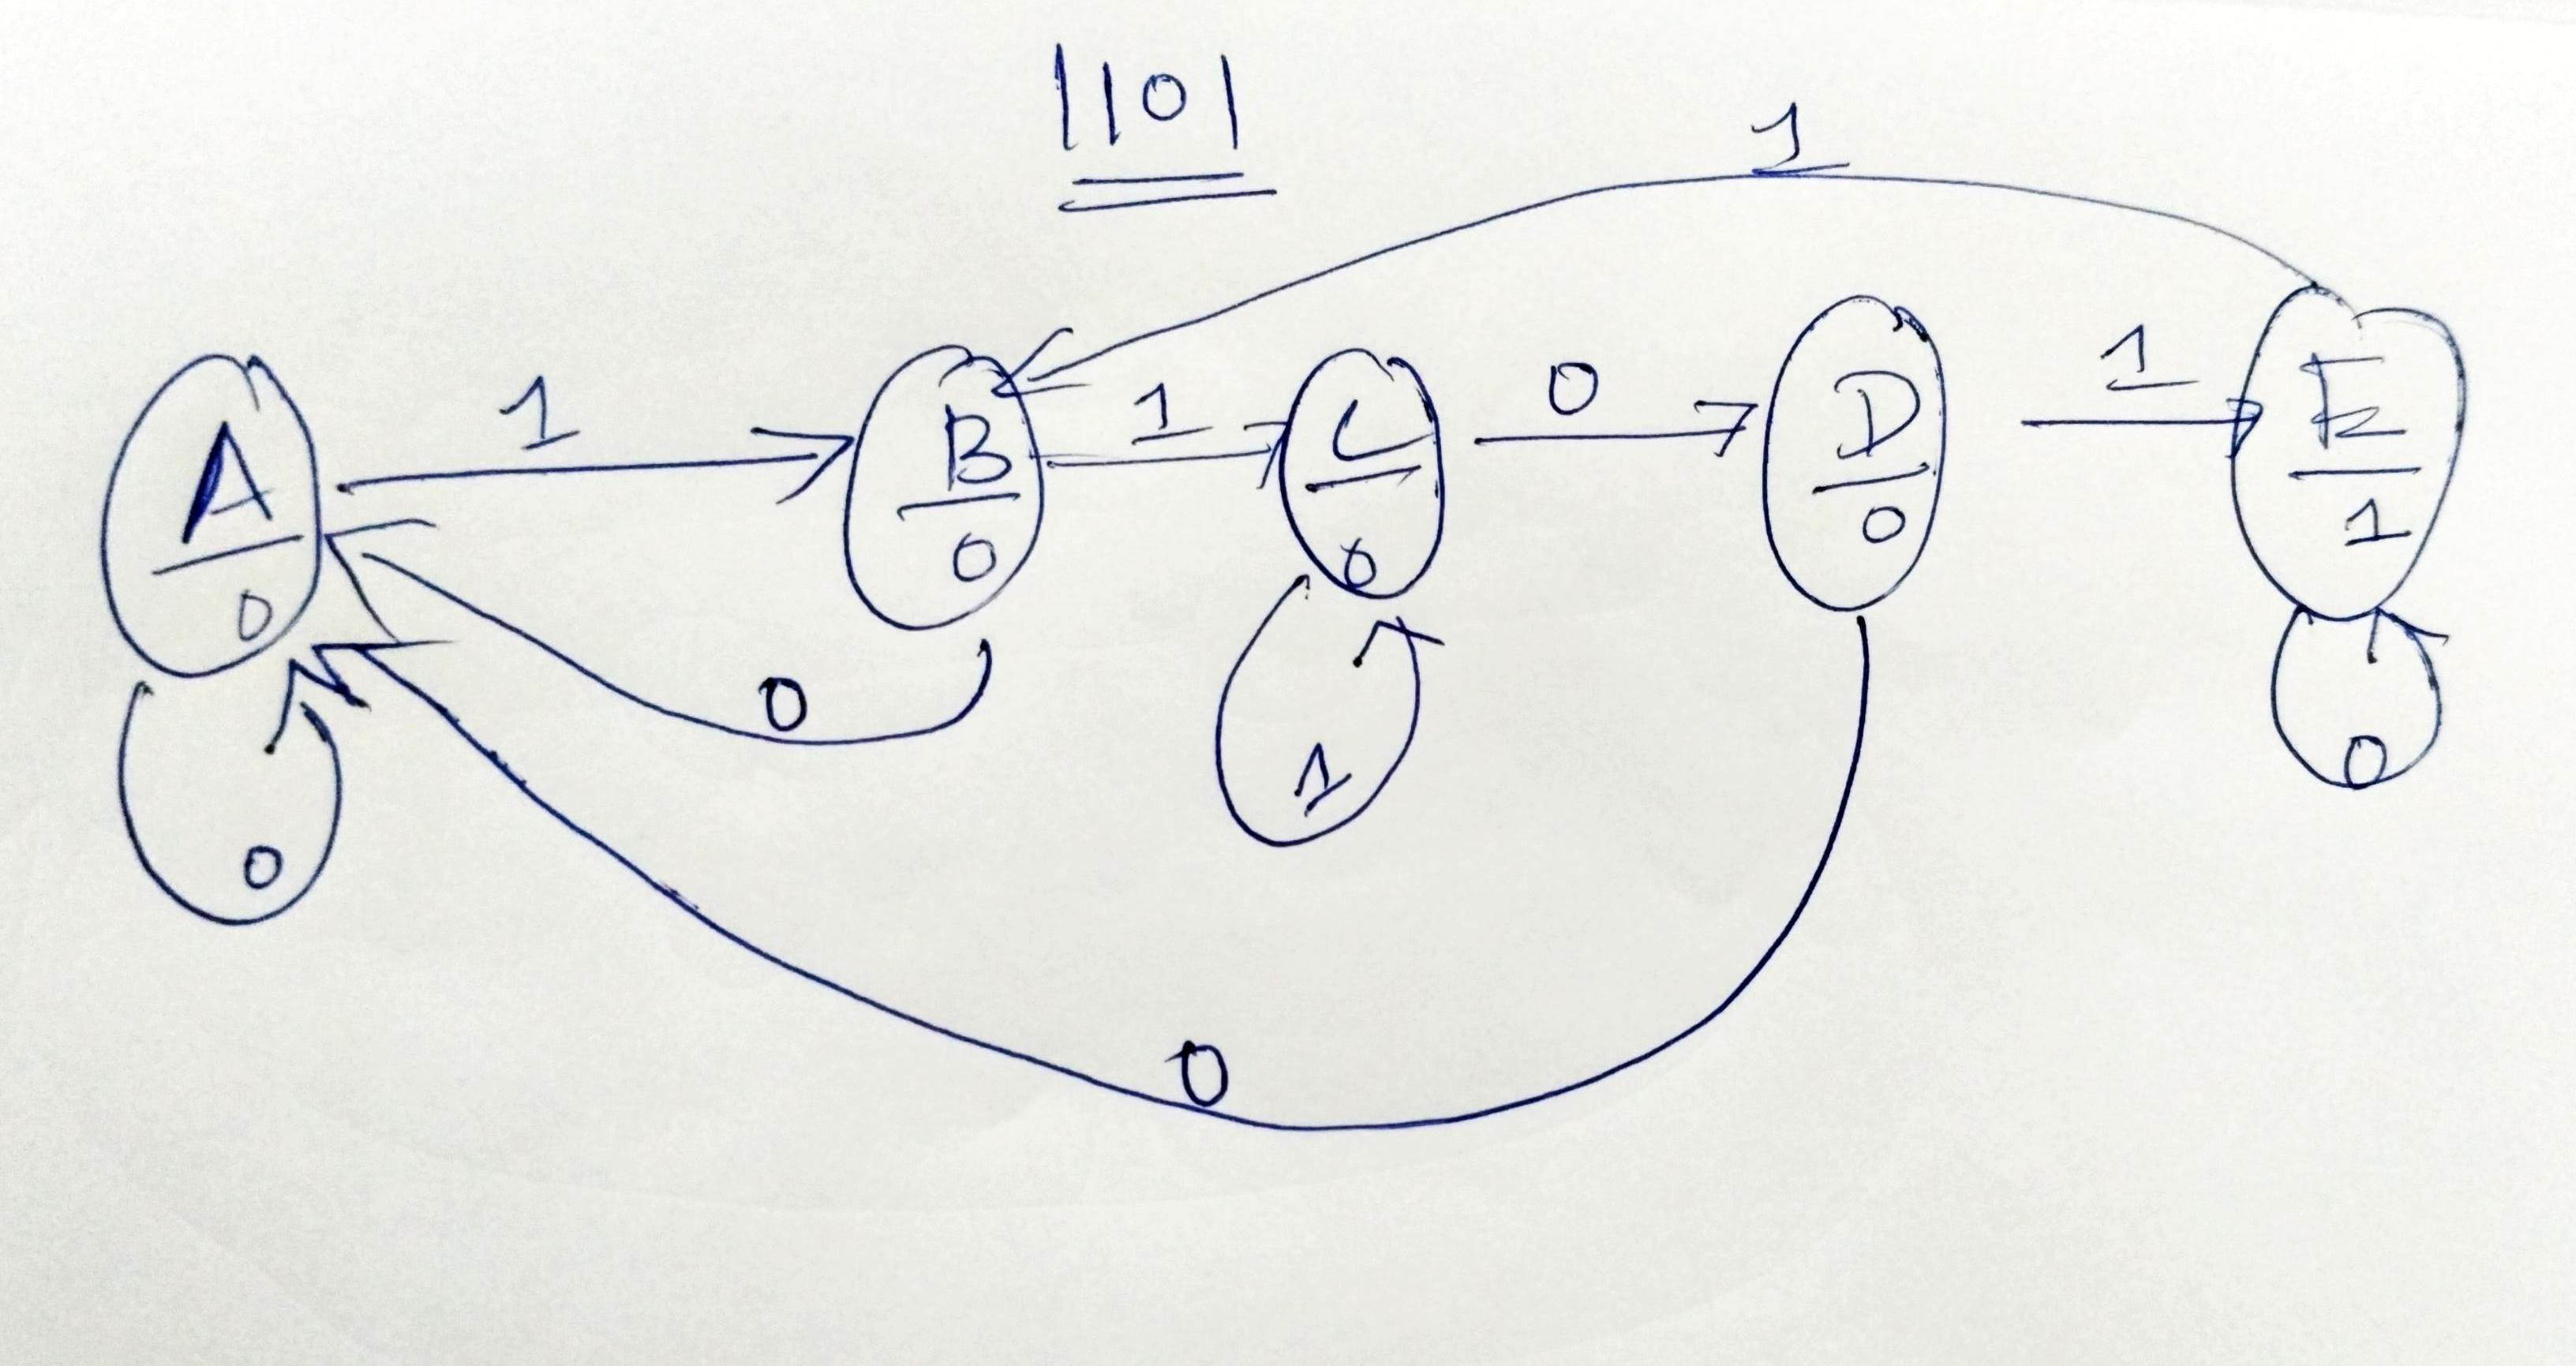 1101
1
A
0
1
B
0
1
C
0
0
D
0
1
E
1
0
0
1
0
0